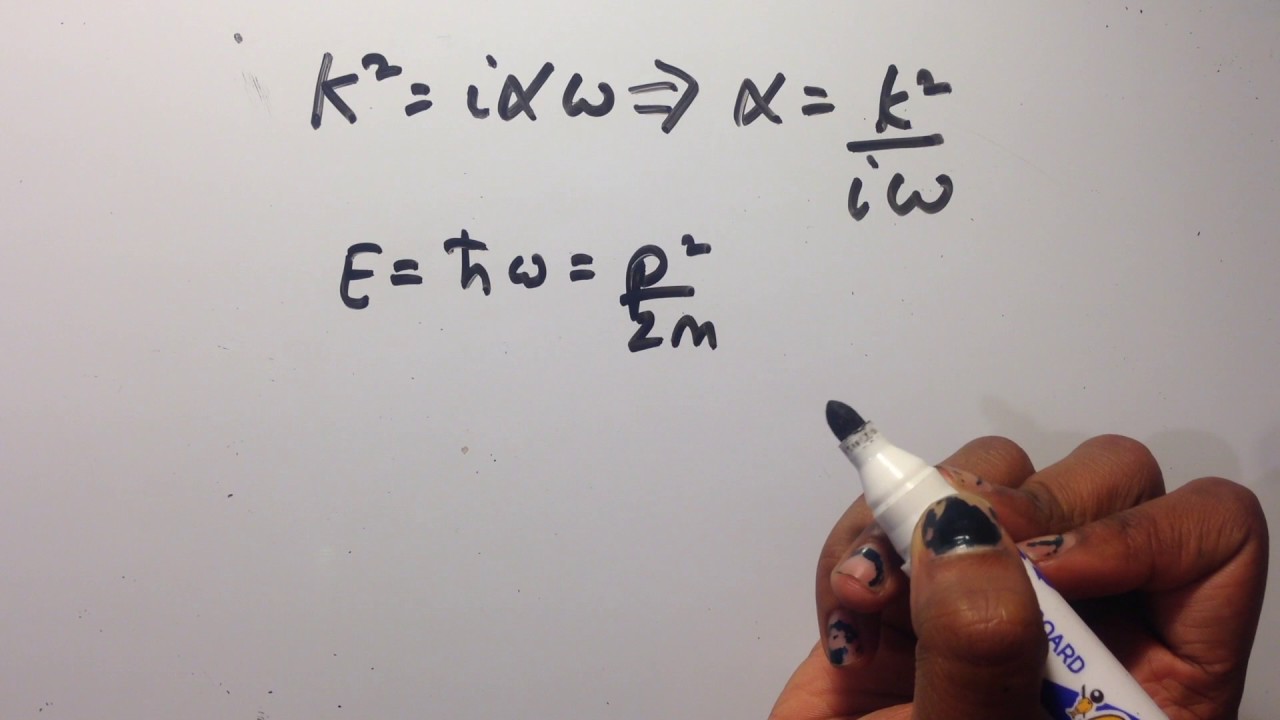 k² = iαω ⇒ α = k²/iω
E = ħω = p²/2m
OARD